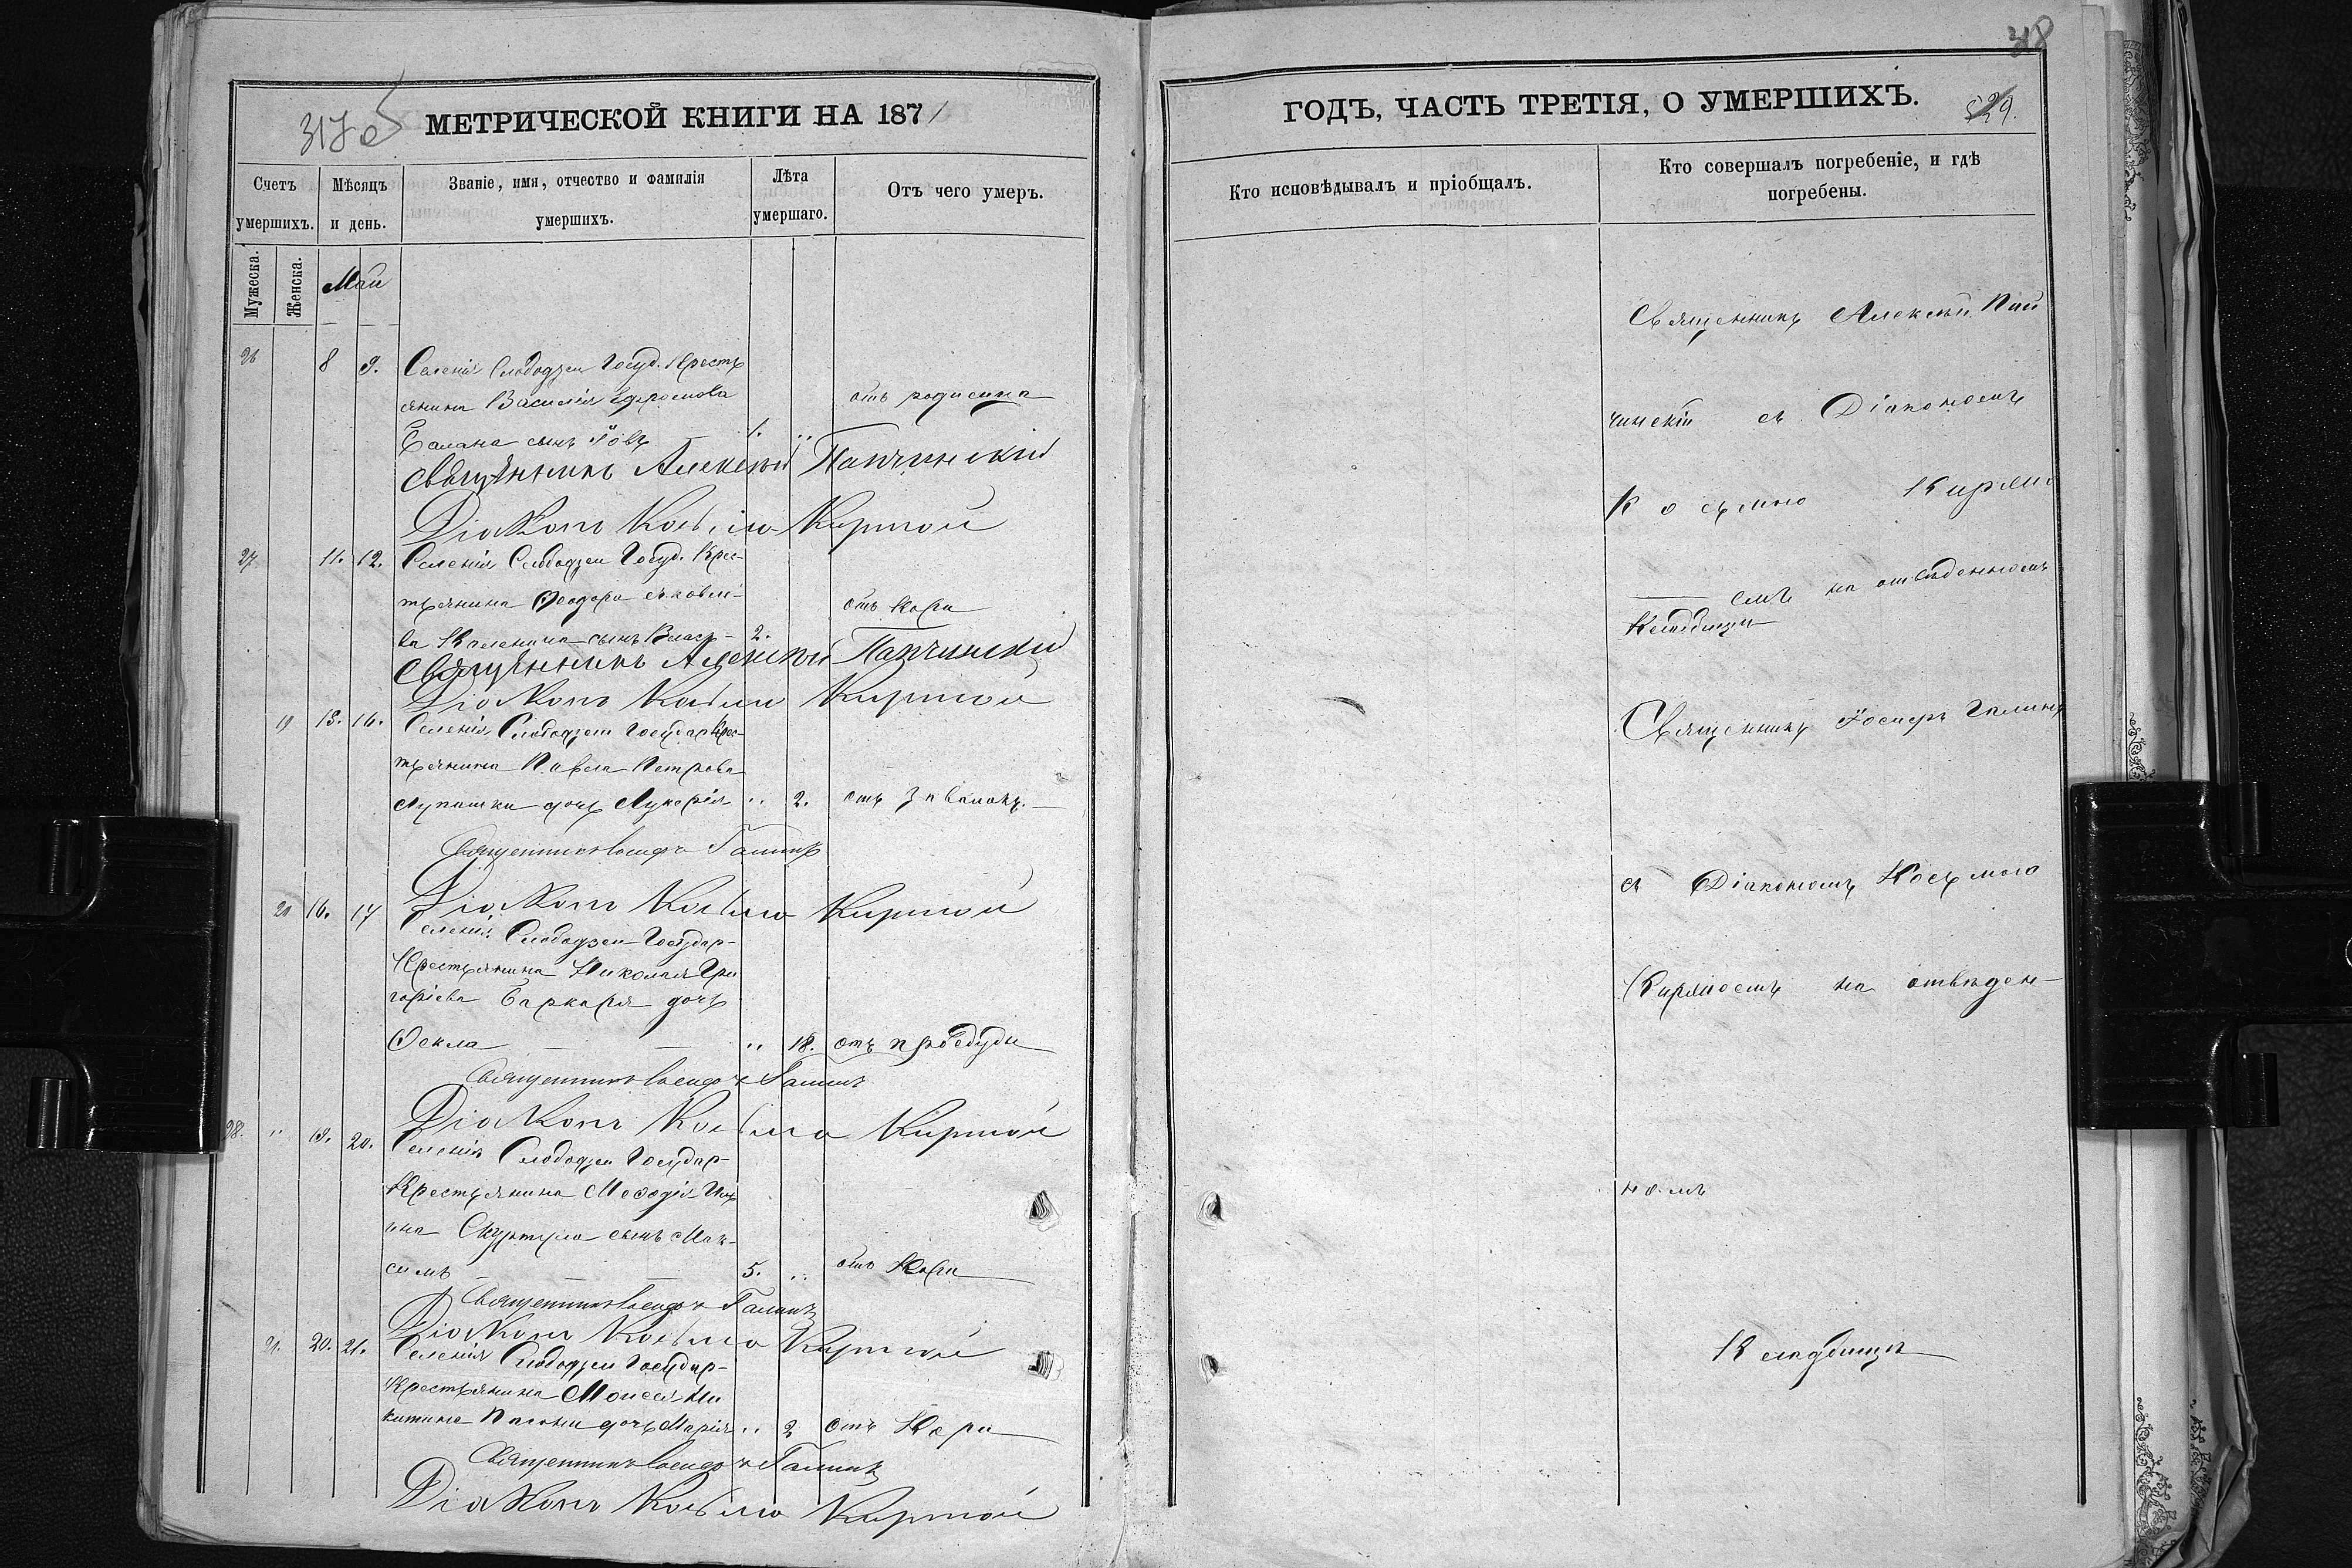 МЕТРИЧЕСКОЙ КНИГИ НА 1871
Счетъ умершихъ.
Мѣсяцъ и день.
Званіе, имя, отчество и фамилія умершихъ.
Лѣта умершаго.
Отъ чего умеръ.
Мужеска.
Женска.
Май
26 8 9. Селенія Слободзеи Госуд. Кресть
янина Василія Ефремова отъ родимца
Балана сынъ Іовъ 1. "
Священникъ Алексѣй Папчинскій
Діаконъ Козьма Кирмой
27 11. 12. Селенія Слободзеи Госуд. Крес-
тьянина Ѳеодора Яковле-
отъ Кори
ва сынъ Власъ - 2.
Священникъ Алексѣй Папчинскій
Діаконъ Козьма Кирмой
19 15. 16. Селенія Слободзеи Государ Крес-
тьянина Павла Петрова
Лупашки дочь Лукерія " 2. отъ
Священникъ Іосифъ Галинъ
Діаконъ Козьма Кирмой
20 16. 17 Селенія Слободзеи Государ-
Крестьянина Николая Гри
горіева Баркаря дочь
Ѳекла " 18. отъ простуды
Священникъ Іосифъ Галинъ
Діаконъ Козьма Кирмой
28. " 19. 20. Селенія Слободзеи Государ-
Крестьянина Меѳодія
ина Скуртула сынъ Мак-
симъ 5. " отъ Кори
Священникъ Іосифъ Галинъ
Діаконъ Козьма Кирмой
21. 20. 21. Селенія Слободзеи Государ-
Крестьянина Моисея Ни
китина дочь Марія " 2 отъ Кори
Священникъ Іосифъ Галинъ
Діаконъ Козьма Кирмой
318
ГОДЪ, ЧАСТЬ ТРЕТІЯ, О УМЕРШИХЪ.
529.
Кто исповѣдывалъ и пріобщалъ.
Кто совершалъ погребеніе, и гдѣ
погребены.
Священникъ Алексѣй Пап
чинскій съ Діакономъ
Косьмою Кирмо
емъ на отвѣденномъ
Кладбищи
Священникъ Іосифъ Галинъ
съ Діакономъ Косьмою
Кирмоемъ на отвѣден-
номъ
Кладбищѣ